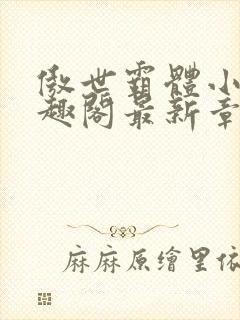 傲世霸體小
趣閣最新章
麻麻原繪里依